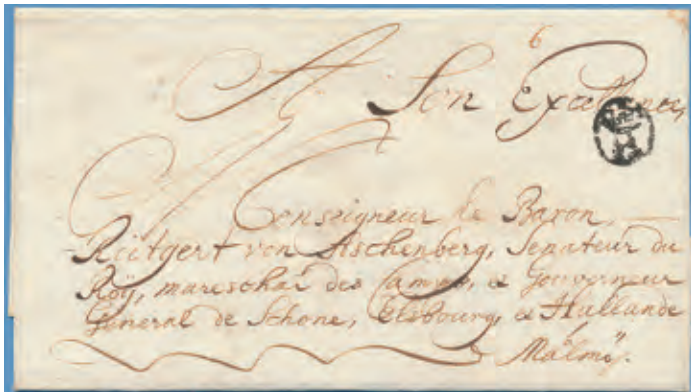 6
A Son Excellence,
Monseigneur le Baron
Rütgert von Aschenberg, Senateur du
Roÿ, mareschal des Camps, & Gouverneur
General de Schone, & Hallande
Malmö.